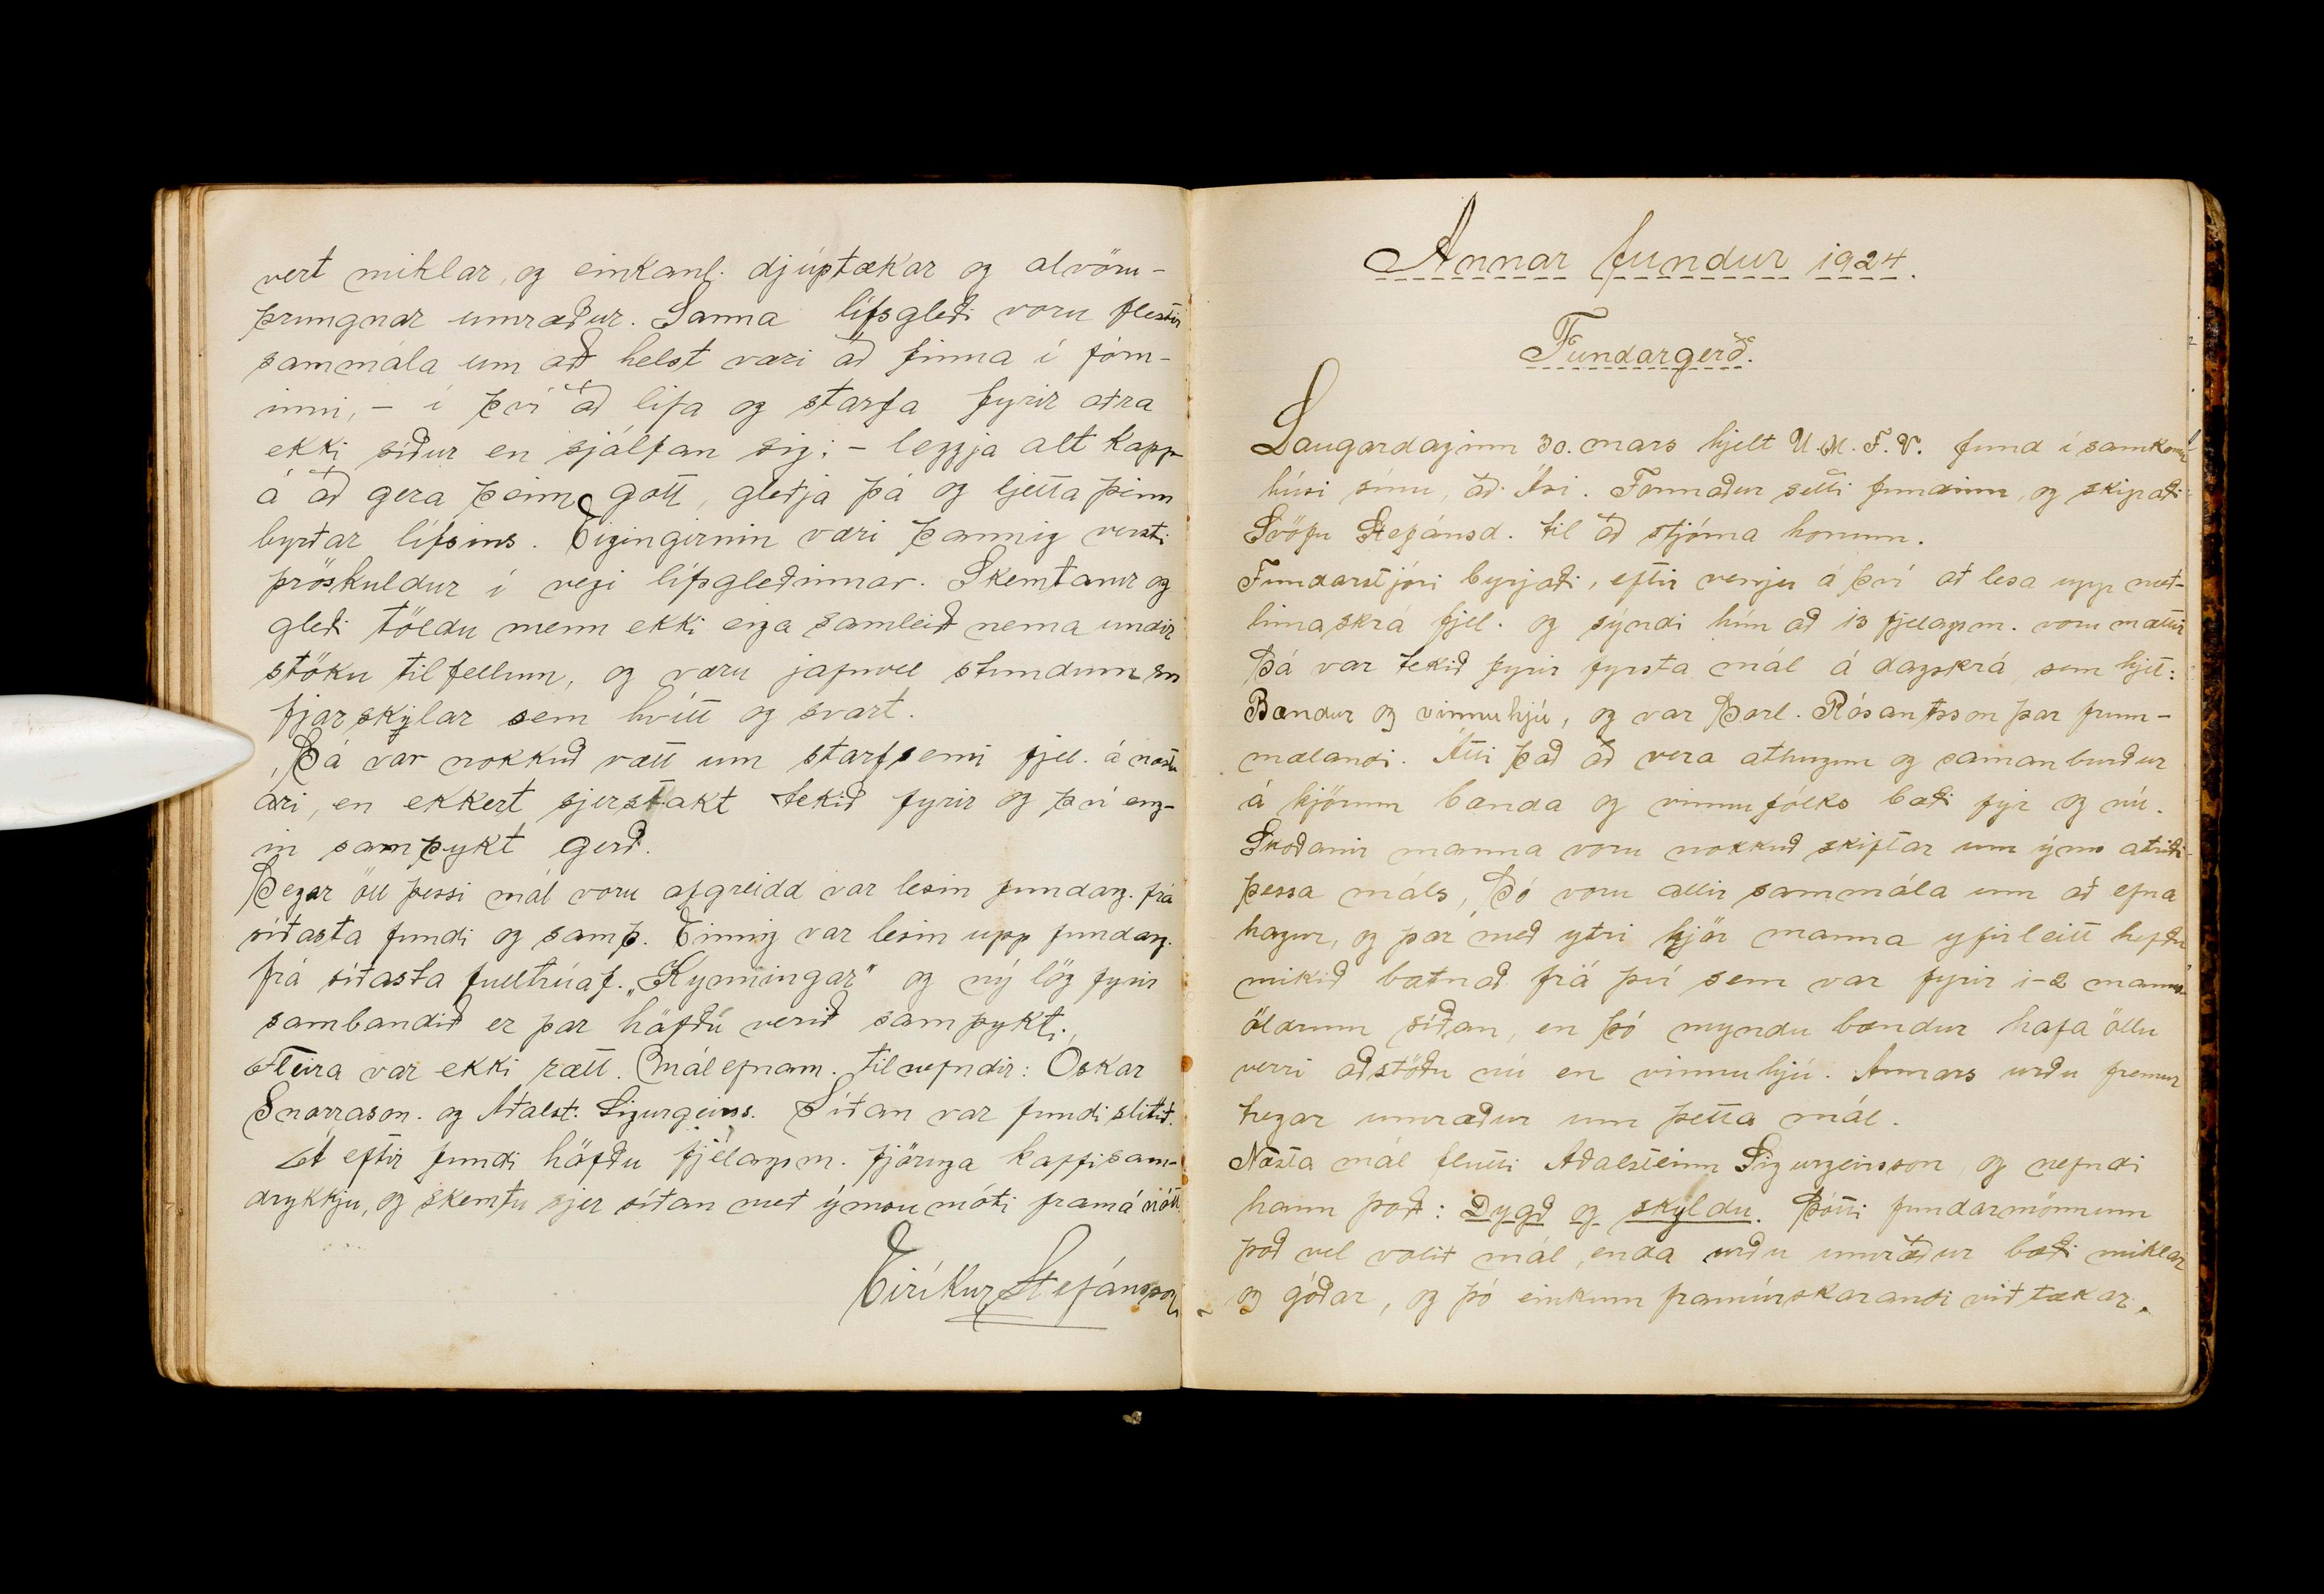 vert miklar, og einkanl. djúptækar og alvöru-
þrungnar umræður. Sanna lífsgleði voru flestir
sammála um að helst væri að finna í fórn-
inni, - í því að lifa og starfa fyrir aðra
ekki síður en sjálfan sig; - leggja alt kapp
á að gera þeim gott, gleðja þá og ljetta þeim
byrðar lífsins. Eigingirnin væri þannig versti
þröskuldur í vegi lífsgleðinnar. Skemtanir og
gleði töldu menn ekki eiga samleið nema undir
stöku tilfellum, og væru jafnvel stundum svo
fjarskylar sem hvítt og svart.
Þá var nokkuð rætt um starfsemi fjel. á næsta
ári, en ekkert sjerstakt tekið fyrir og því eng-
in samþykt gerð.
Þegar öll þessi mál voru afgreidd var lesin fundarg. frá
síðasta fundi og samþ. Einnig var lesin upp fundarg.
frá síðasta fulltrúaf. „Kynningar" og ný lög fyrir
sambandið er þar höfðu verið samþykt.
Fleira var ekki rætt. Málefnam. tilnefndir: Óskar
Snorrason. og Aðalst. Sigurgeirss. Síðan var fundi slitið.
Á eftir fundi höfðu fjélagsm. fjöruga kaffisam-
drykkju, og skemtu sjer síðan með ýmsu móti framá nótt.
Eiríkur Stefánsson
Annar fundur 1924.
Fundargerð.
Laugardaginn 30. mars hjelt U.M.F.V. fund í samkomu
húsi sínu, að Ási. Formaður setti fundinn, og skipaði
Svöfu Stefánsd. til að stjórna honum.
Fundarstjóri byrjaði, eftir venju á því að lesa upp með-
limaskrá fjel. og sýndi hún að 13 fjelagsm. voru mættir
Þá var tekið fyrir fyrsta mál á dagskrá sem hjet:
Bændur og vinnuhjú, og var Þorl. Rósantsson þar frum-
mælandi. Átti það að vera athugun og samanburður
á kjörum bænda og vinnufólks bæði fyr og nú.
Skoðanir manna voru nokkuð skiftar um ýms atriði
þessa máls, Þó voru allir sammála um að efna
hagur, og þar með ytri kjör manna yfirleitt hefðu
mikið batnað frá því sem var fyrir 1-2 manns-
öldrum síðan, en þó myndu bændur hafa öllu
verri aðstöðu nú en vinnuhjú. Annars urðu fremur
hægar umræður um þetta mál.
Næsta mál flutti Aðalsteinn Sigurgeirsson og nefndi
hann það: Dygð og skyldu. Þótti fundarmönnum
það vel valið mál, enda urðu umræður bæði miklar
og góðar, og þó einkum framúrskarandi víðtækar.